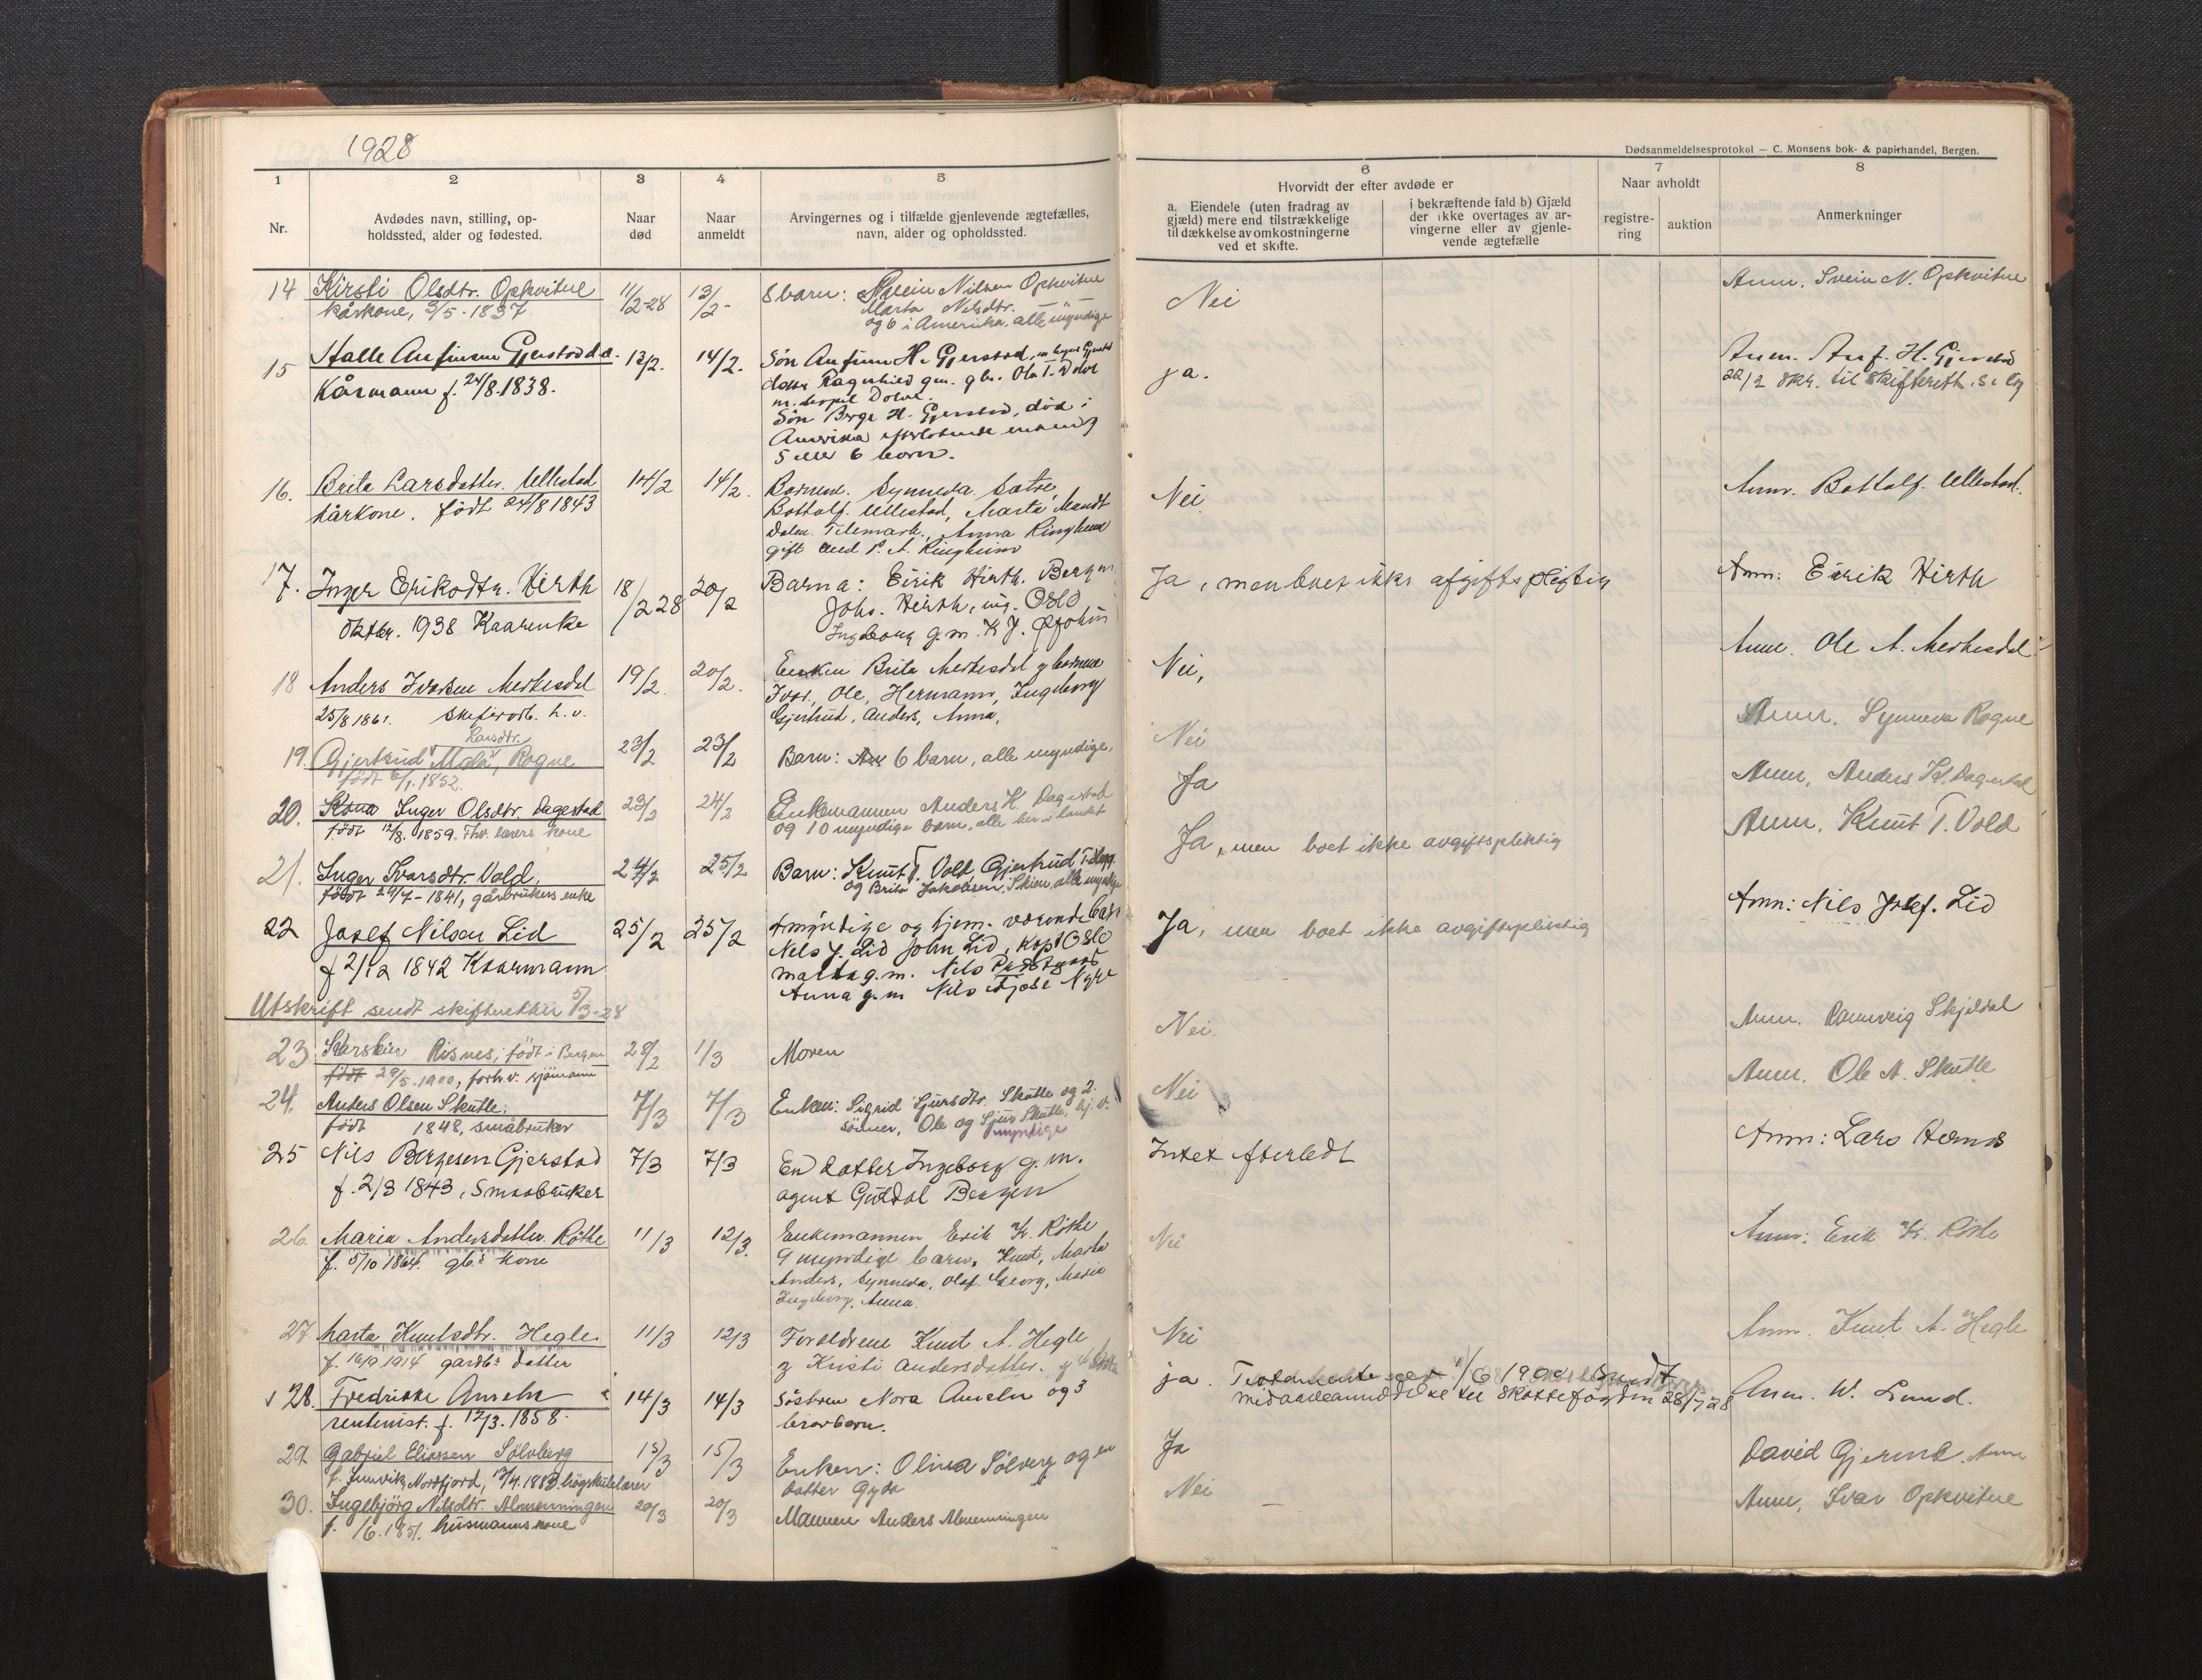 1928
Dødsanmeldelsesprotokol — C. Monsens bok- & papirhandel, Bergen.
1 2 3 4 5 6 7 8
Nr.
Avdødes navn, stilling, op-
holdssted, alder og fødested.
Naar
død
Naar
anmeldt
Arvingernes og i tilfælde gjenlevende ægtefælles,
navn, alder og opholdssted.
Hvorvidt der efter avdøde er
a. Eiendele (uten fradrag av
gjæld) mere end tilstrækkelige
til dækkelse av omkostningerne
ved et skifte.
i bekræftende fald b) Gjæld
der ikke overtages av ar-
vingerne eller av gjenle-
vende ægtefælle
Naar avholdt
registre-
ring
auktion
Anmerkninger
14 Kirsti Olsdtr. Opkvitne 11/2-28 13/2- 8 barn: Svein Nilsen Opkvitne Nei Anm. Svein N. Opkvitne
kårkone, 3/5-1837 Marta Nilsdtr. — " —
og 6 i Amerika, alle myndige
15 Halle Anfinsen Gjerstad 13/2. 14/2. Søn Anfinn H. Gjerstad ja. Anm. Anf. H. Gjerstad
Kårmann f. 24/8.1838. datter Ragnhild gm. gbr. Ola T. Dolve 22/2 skr. til skifterett.
Søn Berge H. Gjerstad, død i
Amerika efterlatende enke og
5 eller 6 born.
16. Brita Larsdatter Ullestad 14/2 14/2. Bornene. Synneva Sætre, Nei Anm. Bottolf Ullestad.
kårkone. født 24/8 1843 Bottolf Ullestad, Marta Mandt
Dalen Telemark, Anna Ringheim
gift med P. A. Ringheim
17. Inger Eriksdtr. Hirth 18/2 28 20/2 Barna: Eirik Hirth, Bergen Ja, men boet ikke afgiftspligtig Anm: Eirik Hirth
Oktbr. 1938 Kaarenke Johs. Hirth, ing. Oslo
Ingeborg g.m. K J.
18 Anders Ivarsen Merkesdal 19/2. 20/2. Enken Brita Merkesdal og bornene Nei, Anm. Ole A. Merkesdal
25/8 1861. Ivar, Ole, Hermann, Ingeborg
Gjertrud, Anders, Anna,
19. Gjertrud Larsdtr. Mala, Rogne 23/2 23/2 Barn: 6 barn, alle myndige, Nei Anm. Synneva Rogne
født 6/1.1852.
20. Kona Inger Olsdtr. Dagestad 23/2 24/2 Enkemannen Anders K. Dagestad Ja Anm. Anders K. Dagestad
født 12/8. 1859. Fhv. lærers kone og 10 myndige barn, alle her i landet
21. Inger Ivarsdtr. Vold, 24/2 25/2 Barn: Knut T. Vold, Gjertrud Ja, men boet ikke avgiftspliktig Anm. Knut T. Vold
født 29/7-1841, gårbrukers enke og Brita Jakobsen, Skien, alle myndige
22 Josef Nilsen Lid 25/2 25/2 4 myndige og hjem. værende barn Ja, men boet ikke avgiftspliktig Anm: Nils Josef. Lid
f 2/12 1842 Kaarmann Nels J. Lid John Lid, kapt Oslo
Marta g.m. Nils
Anna g.m Nils Fjose
Utskrift sendt skifteretten 5/3-28
23 Karsten Risnes, født i Bergen 28/2 1/3 Moren Nei. Anm. Rannveig Skjeldal
født 29/5.1900, forh.v. sjømann
24. Anders Olsen Skutle: 7/3 7/3 Enken: Sigrid Sjursdtr. Skutle og 2 Nei Anm. Ole A. Skutle
født 1848, småbruker sønner, Ole og Sjur Skutle, hj. v.
myndige
25 Nils Bergesen Gjerstad 7/3 7/3 En datter Ingeborg g.m. Intet efterladt Anm: Lars Hernes
f. 2/3 1843, Smaabruker agent Guldal Bergen
26. Maria Andersdatter Röthe 11/3 12/3. Enkemannen Erik K. Röthe Nei Anm: Erik K. Röthe
f. 5/10 1864. gb.s kone 9 myndige barn, Knut, Marta
Anders, Synneva, Olaf, Georg, Maria
Ingeborg, Anna.
27 Marta Knutsdtr. Hegle. 11/3 12/3 Foreldrene Knut A. Hegle Nei Anm. Knut A. Hegle
f. 16/9 1914 gardbs datter og Kristi Andersdatter.
28. Fredrikke Ameln 14/3 14/3 Søstren Nora Ameln og 3 ja. Testamente 11/6 1900 Anm. W. Lund.
rentenist. f. 12/3.1858. brorbarn. skattefogden 28/7 28
29 Gabriel Eliassen Sölvberg 15/3 15/3 Enken: Olina Sölvberg og en Ja David Gjerme. Anm
f. Innvik, Nordfjord, 13/4.1883. høgskulelærer datter Gyda
30. Ingebjörg Nilsdtr. Almenningen 20/3 20/3 Mannen Anders Almenningen Nei Anm. Ivar Opkvitne
f. /6.1851. husmanns kone